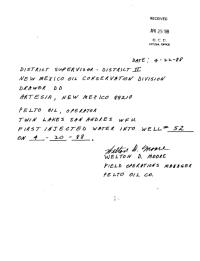 RECEIVED
APR 25 '88
O. C. D.
ARTESIA, OFFICE
DATE: 4-22-88
DISTRICT SUPERVISOR - DISTRICT II
NEW MEXICO OIL CONSERVATION DIVISION
DRAWER DD
ARTESIA, NEW MEXICO 88210
PELTO OIL, OPERATOR
TWIN LAKES SAN ANDRES WFU
FIRST INJECTED WATER INTO WELL # 52
ON 4 - 20 - 88.
Welton D. Moore
WELTON D. MOORE
FIELD OPERATIONS MANAGER
PELTO OIL CO.